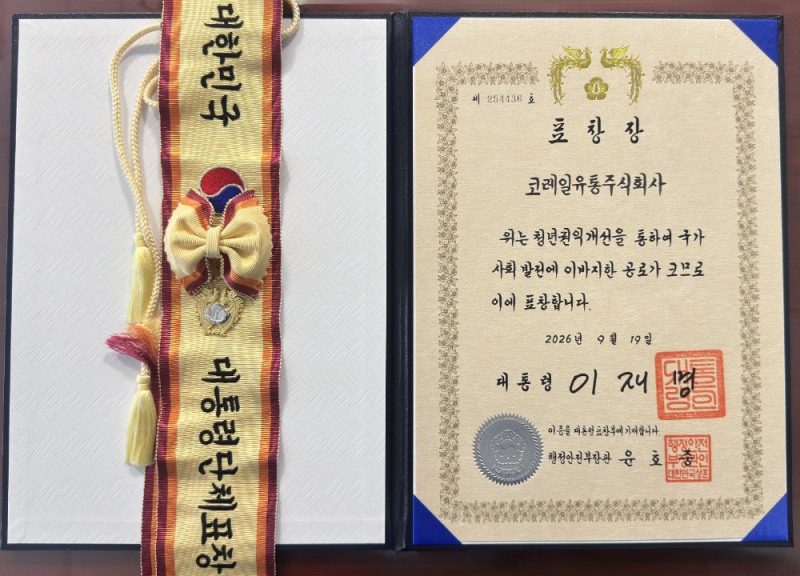 대한민국
대통령단체표창
제 254436 호
표창장
코레일유통주식회사
위는 청년권익개선을 통하여 국가
사회 발전에 이바지한 공로가 크므로
이에 표창합니다.
2026년 9월 19일
대통령 이재명
이 증을 대통령표창부에 기재합니다.
행정안전부장관 윤호중